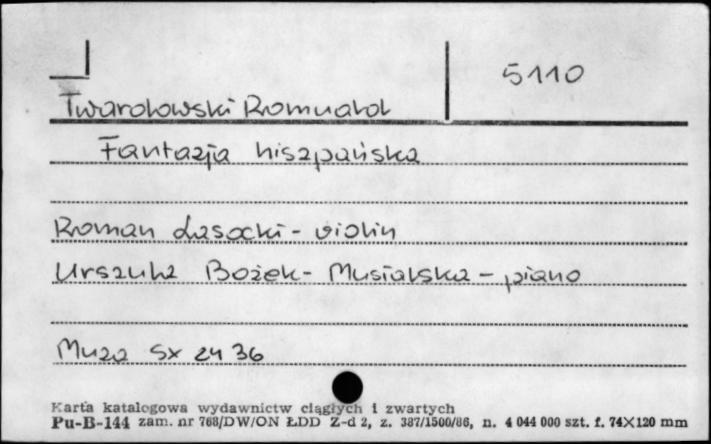 5110
Twardowski Romuald
Fantazja hiszpańska
Roman Lasocki - violin
Urszula Bożek - Musialska - piano
Muza SX 2436
Karta katalogowa wydawnictw ciągłych i zwartych
Pu-B-144 zam. nr 768/DW/ON ŁDD Z-d 2, z. 387/1500/86, n. 4 044 000 szt. f. 74×120 mm